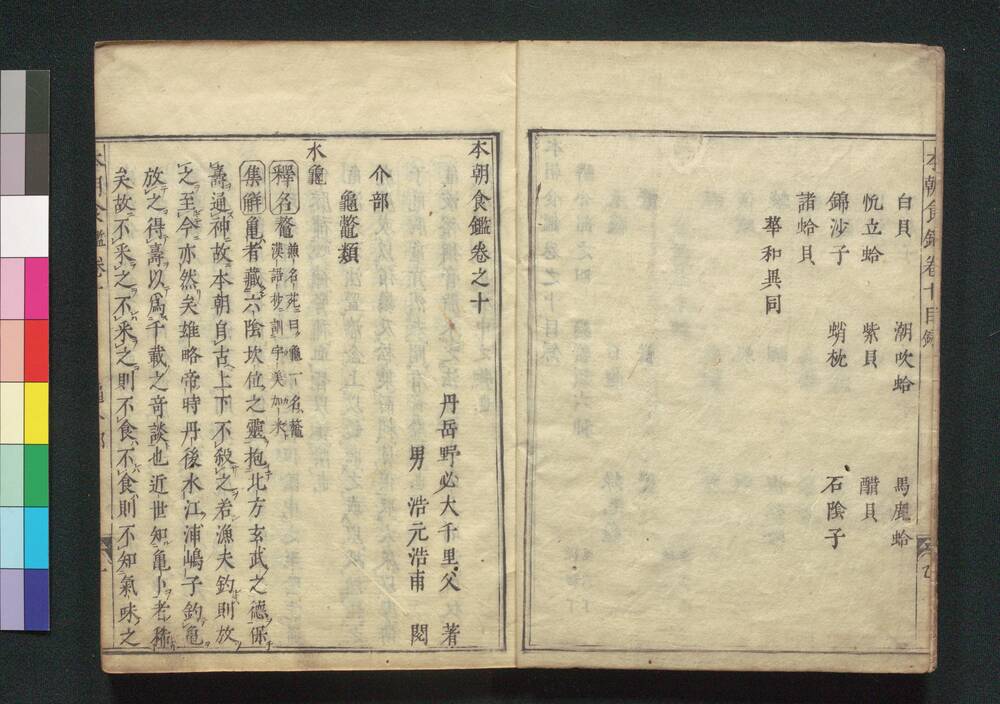 本朝食鑑卷十目録
白貝 潮吹蛤 馬鹿蛤
恍立蛤 紫貝 醋貝
錦沙子 蛸枕 石陰子
諸蛤貝
華和異同
本朝食鑑卷之十
丹岳野必大千里父 著
男 浩元浩甫 閲
介部
龜鼈類
水龜
釋名鼇
集解龜者藏六陰坎位之靈抱北方玄武之德保
壽通神故本朝自古上下不殺之若漁夫釣則放
之至今亦然矣雄略帝時丹後水江浦嶋子釣龜
放之得壽以爲千載之奇談也近世知龜卜者稀
矣故不采之不采之則不食不食則不知氣味之